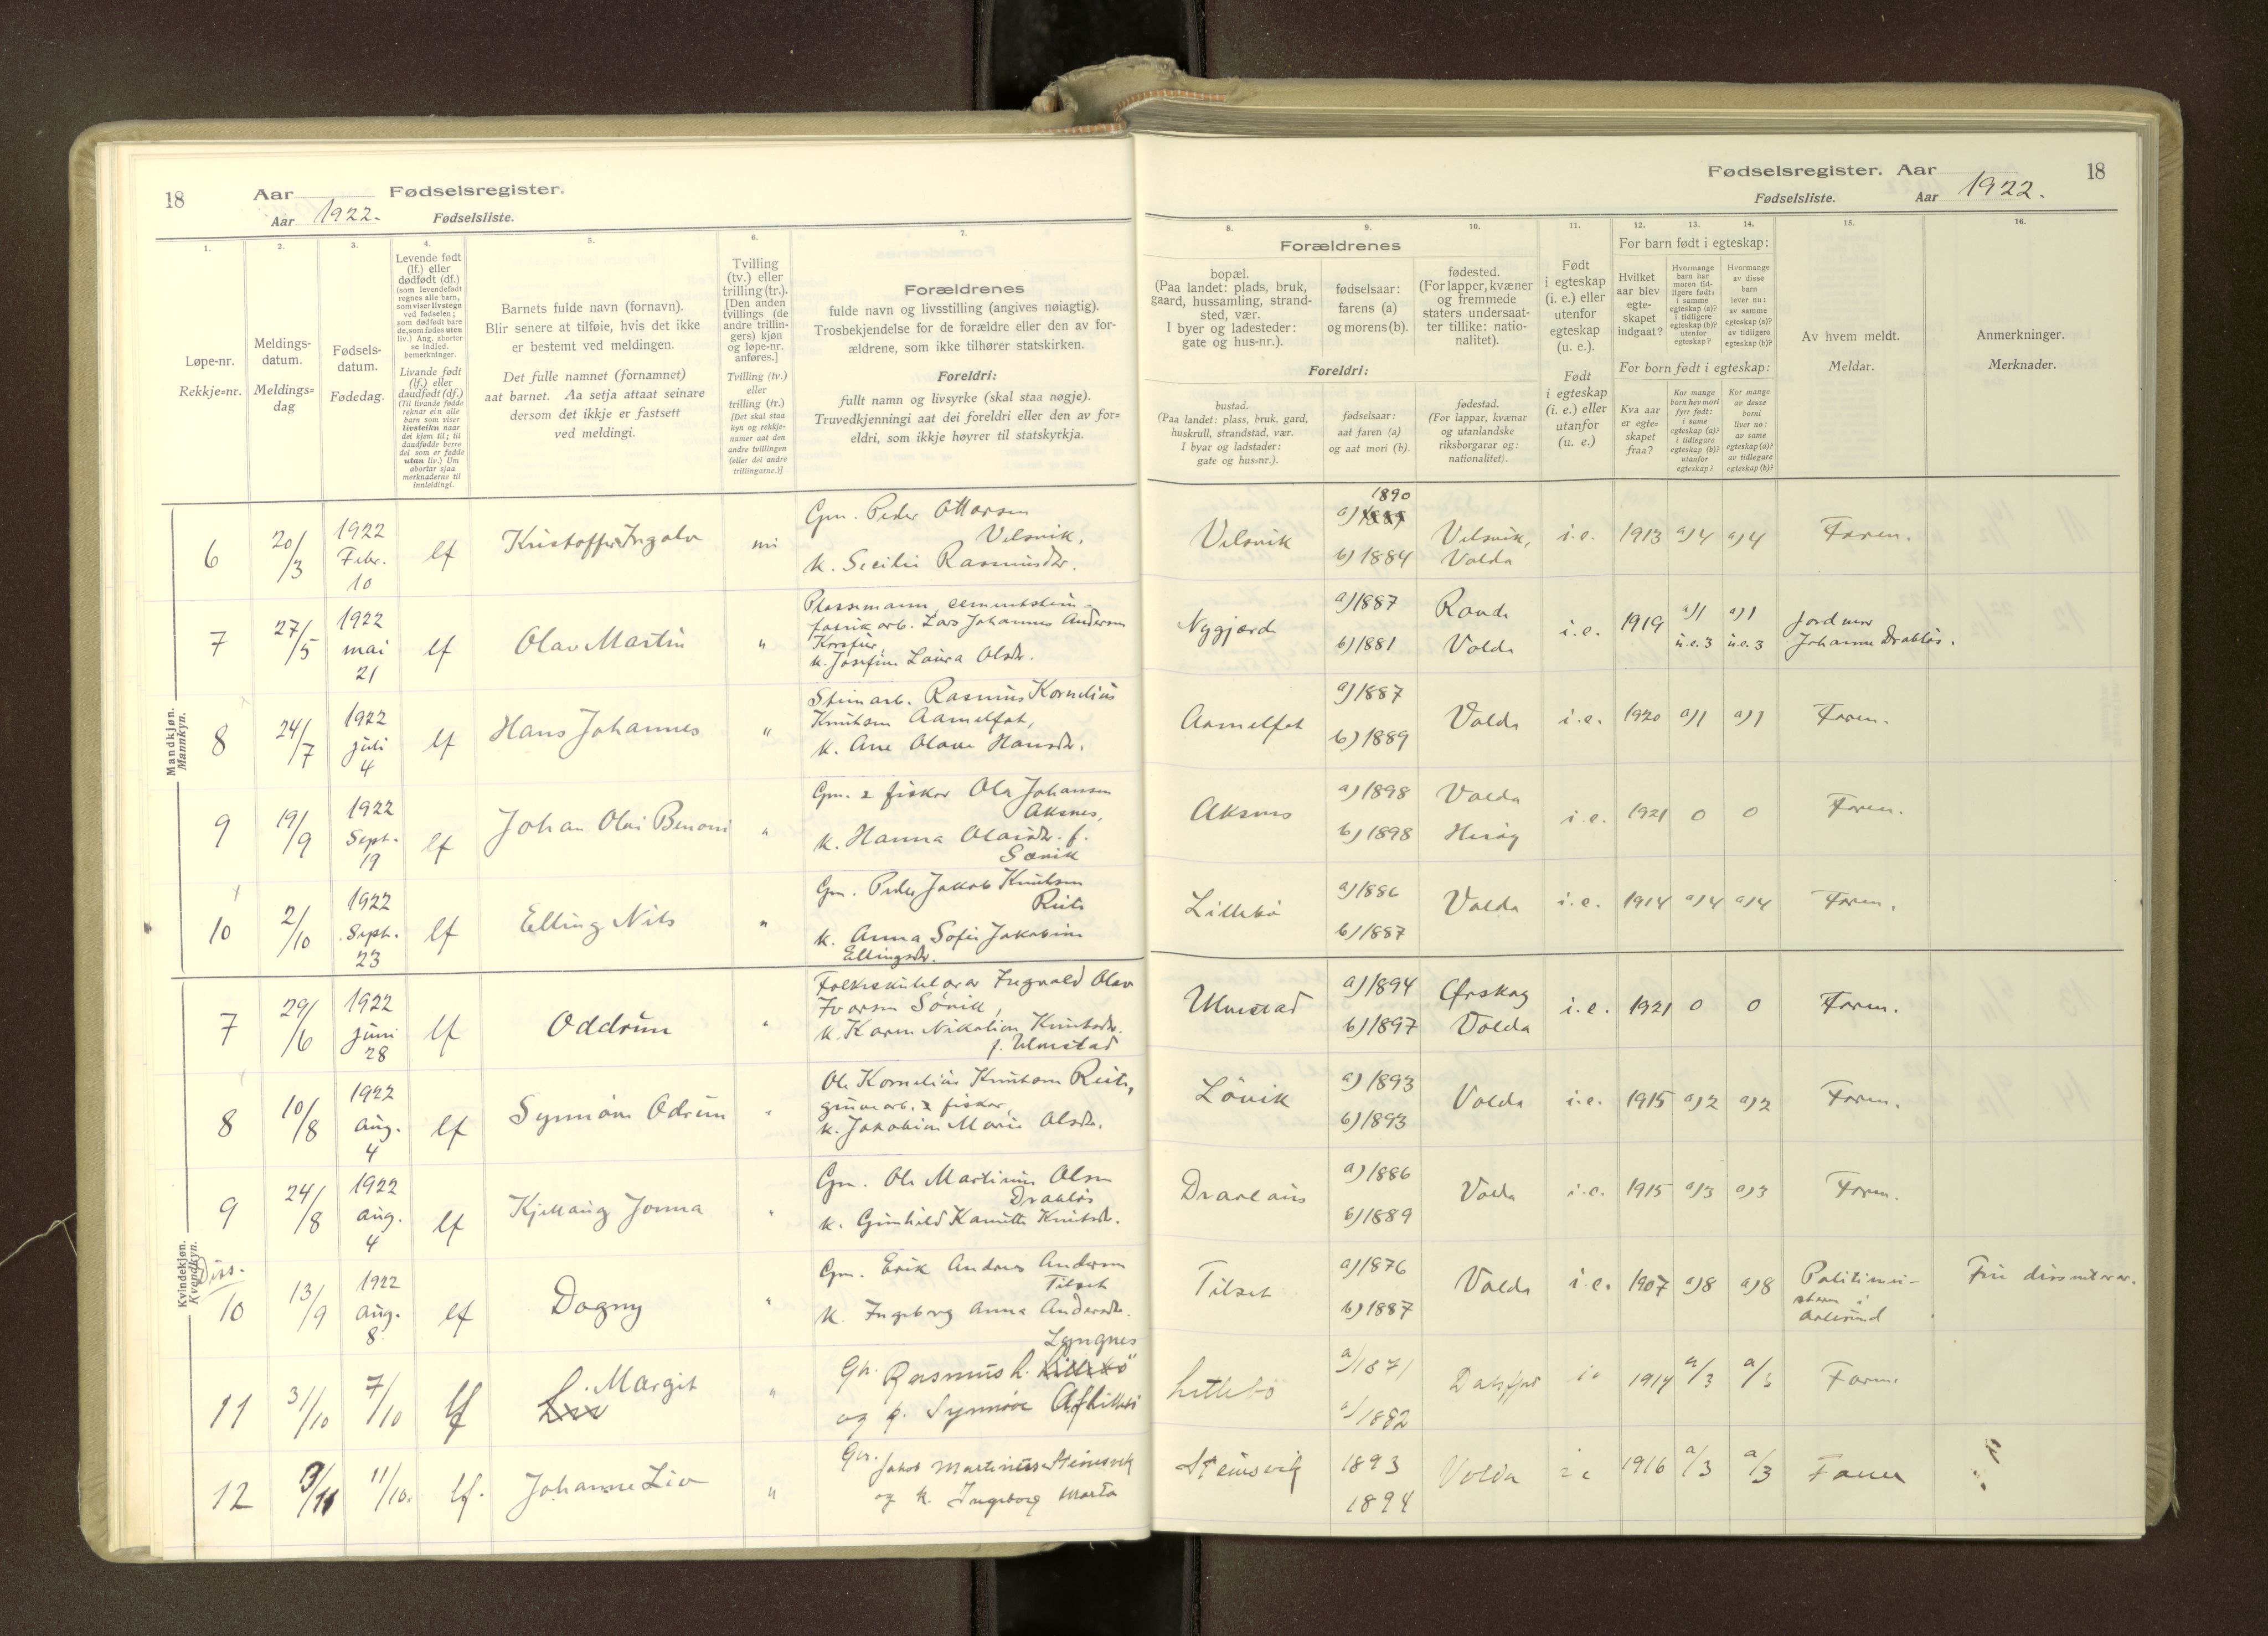 18 Aar Fødselsregister.
Aar 1922. Fødselsliste.
Fødselsregister. Aar 18
Fødselsliste. Aar 1922.
1. 2. 3. 4. 5. 6. 7.
Løpe-nr.
Rekkje=nr.
Meldings-
datum.
Meldings=
dag
Fødsels-
datum.
Fødedag.
Levende født
(lf.) eller
dødfødt (df.)
(som levendefødt
regnes alle barn,
som viser livstegn
ved fødselen;
som dødfødt bare
de, som fødes uten
liv.) Ang. aborter
se indled.
bemerkninger.
Livande født
(lf.) eller
daudfødt (df.)
(Til livande fødde
reknar ein alle
barn som viser
livsteikn naar
dei kjem til; til
daudfødde berre
dei som er fødde
utan liv.) Um
abortar sjaa
merknaderne til
innleidingi.
Barnets fulde navn (fornavn).
Blir senere at tilføie, hvis det ikke
er bestemt ved meldingen.
Det fulle namnet (fornamnet)
aat barnet. Aa setja attaat seinare
dersom det ikkje er fastsett
ved meldingi.
Tvilling
(tv.) eller
trilling (tr.).
[Den anden
tvillings (de
andre trillin-
gers) kjøn
og løpe-nr.
anføres.]
Tvilling (tv.)
eller
trilling (tr.)
[Det skal staa
kyn og rekkje-
numer aat den
andre tvillingen
(eller dei andre
trillingarne.)]
Forældrenes
fulde navn og livsstilling (angives nøiagtig).
Trosbekjendelse for de forældre eller den av for-
ældrene, som ikke tilhører statskirken.
Foreldri:
fullt namn og livsyrke (skal staa nøgje).
Truvedkjenningi aat dei foreldri eller den av for=
eldri, som ikkje høyrer til statskyrkja.
8. 9. 10. 11. 12. 13. 14. 15. 16.
Forældrenes
bopæl.
(Paa landet: plads, bruk,
gaard, hussamling, strand-
sted, vær.
I byer og ladesteder:
gate og hus-nr.).
fødselsaar:
farens (a)
og morens (b).
fødested.
(For lapper, kvæner
og fremmede
staters undersaat-
ter tillike: natio-
nalitet).
Foreldri:
bustad.
(Paa landet: plass, bruk, gard,
huskrull, strandstad, vær.
I byar og ladstader:
gate og hus=nr.).
fødselsaar:
aat faren (a)
og aat mori (b).
fødestad.
(For lappar, kvænar
og utanlandske
riksborgarar og:
nationalitet).
Født
i egteskap
(i. e.) eller
utenfor
egteskap
(u. e.).
Født
i egteskap
(i. e.) eller
utanfor
egteskap
(u. e.)
For barn født i egteskap:
Hvilket
aar blev
egte-
skapet
indgaat?
Hvormange
barn har
moren tid-
ligere født:
i samme
egteskap (a)?
i tidligere
egteskap (b)?
utenfor
egteskap?
Hvormange
av disse
barn
lever nu:
av samme
egteskap (a)?
av tidligere
egteskap (b)?
For born født i egteskap:
Kva aar
er egte=
skapet
fraa?
Kor mange
born hev mori
fyrr født:
i same
egteskap (a)?
i tidlegare
egteskap (b)?
utanfor
egteskap?
Kor mange
av desse
borni
liver no:
av same
egteskap (a)?
av tidlegare
egteskap (b)?
Av hvem meldt.
Meldar.
Anmerkninger.
Merknader.
Mandkjøn.
Mannkyn.
6 20/3 1922 Febr. 10 lf Kristoffer Ingolv nei
Gm. Peder Ottarsen
Velsvik,
k. Secilie Rasmusdr.
Velsvik a) 1889 1890 b) 1884 Velsvik, Volda i.e. 1913 a) 4 a) 4 Faren.
7 27/5 1922 mai 21 lf Olav Martin "
Plassmann, cementstein-
fabrik arb. Lars Johannes Andersen
k. Josefine Laura Olsdr.
Nygjerde a) 1887 b) 1881 Volda i.e. 1919 a) 1 u.e. 3 a) 1 u.e. 3 Jordmor
Johanne Drabløs.
8 24/7 1922 juli 4 lf Hans Johannes "
Steinarb. Rasmus Kornelius
Knutsen Aarnelfot,
k. Ane Olave Hansdr.
Aarnelfot a) 1887 b) 1889 Volda i.e. 1920 a) 1 a) 1 Faren.
9 19/9 1922 Sept. 19 lf Johan Olai Benoni "
Gm. & fiskar Ola Johansen
Aksnes,
k. Hanna Olaisdr. f.
Aksnes a) 1898 b) 1898 Volda Herøy i.e. 1921 0 0 Faren.
10 2/10 1922 Sept. 23 lf Elling Nils "
Gm. Peder Jakob Knutsen
k. Anna Sofie Jakobine
Ellingsdr.
Lillebø a) 1886 b) 1887 Volda i.e. 1914 a) 4 a) 4 Faren.
Kvindekjøn.
Kvendkyn.
7 29/6 1922 juni 28 lf Oddrun "
Folkeskulelærar Ingvald Olav
Ivarsen Sørvik,
k. Karen Nikoline Knutsdr.
f. Ulvestad
Ulvestad a) 1894 b) 1897 Ørskog Volda i.e. 1921 0 0 Faren.
8 10/8 1922 aug. 4 lf Synnøve Odrun "
Ole Kornelius Knutsen
gruvearb. & fiskar,
k. Jakobine Marie Olsdr.
Løvik a) 1893 b) 1893 Volda i.e. 1915 a) 2 a) 2 Faren.
9 24/8 1922 aug. 4 lf Kjellaug Jonna "
Gm. Ole Martinus Olsen
Drabløs
k. Gunhild Kamilla Knutsdr.
a) 1886 b) 1889 Volda i.e. 1915 a) 3 a) 3 Faren.
Diss.
10 13/9 1922 aug. 8 lf Dagny "
Gm. Erik Andreas Andersen
Tilset
k. Ingeborg Anna Andersdr.
Tilset a) 1876 b) 1887 Volda i.e. 1907 a) 8 a) 8 Politimei-
steren i
Aalesund Frie dissenterar.
11 31/10 7/10 lf Liv Margit "
Lyngnes
Gr. Rasmus L. Lillebø
og k. Synnøve
Lillebø a) 1871 1882 Dalsfjord i e 1914 a/3 a/3 Faren.
12 3/11 11/10. lf. Johanne Liv "
Gr. Jakob Martinus Steinsvik
og k. Ingeborg Marta
Steinsvik 1893 1894 Volda i e 1916 a/3 a/3 Faren